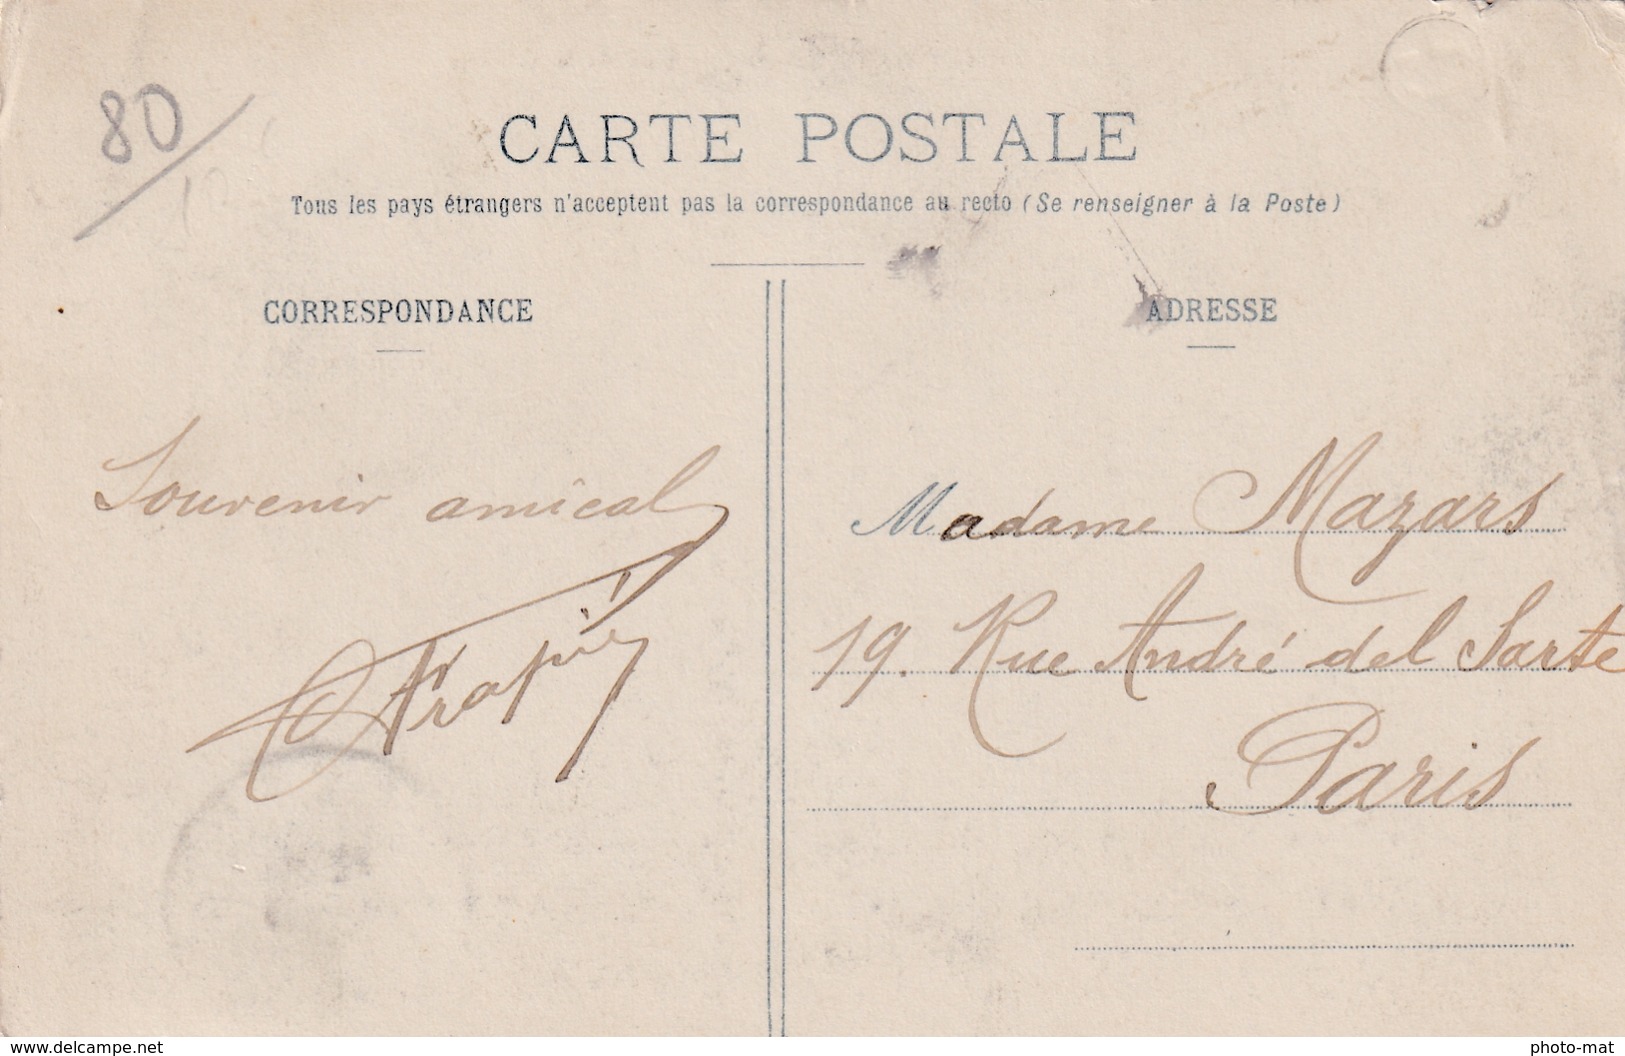 80
CARTE POSTALE
Tous les pays étrangers n'acceptent pas la correspondance au recto (Se renseigner à la Poste)
CORRESPONDANCE
ADRESSE
Souvenir amical
Madame Mazars
19. Rue André del Sarte
Paris
www.delcampe.net
photo-mat